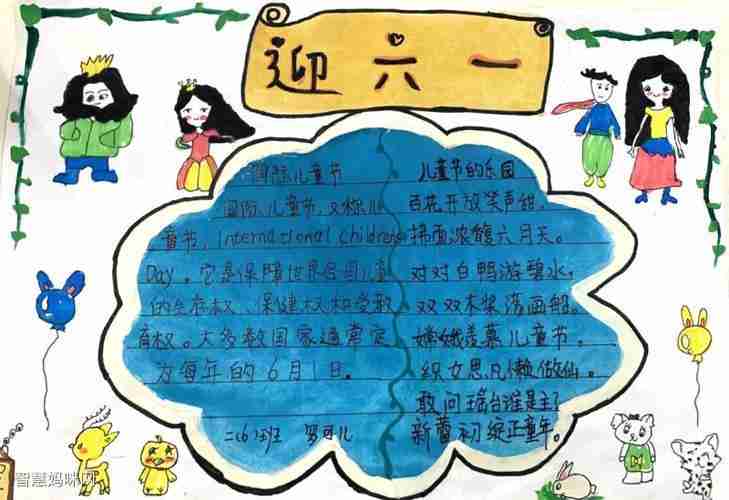 迎六一
国际儿童节
国际儿童节,又称儿
童节,International Children
Day。它是保障世界各国儿童
的生存权、保健权和受教
育权。大多数国家通常定
为每年的6月1日。
二(6)班
儿童节的乐园
百花开放笑声甜,
拂面浓馥六月天。
对对白鸭游碧水,
双双木桨荡画船。
嫦娥羡慕儿童节,
织女思凡懒做仙。
敢问瑶台谁是主?
新蕾初绽正童年。
智慧妈咪网